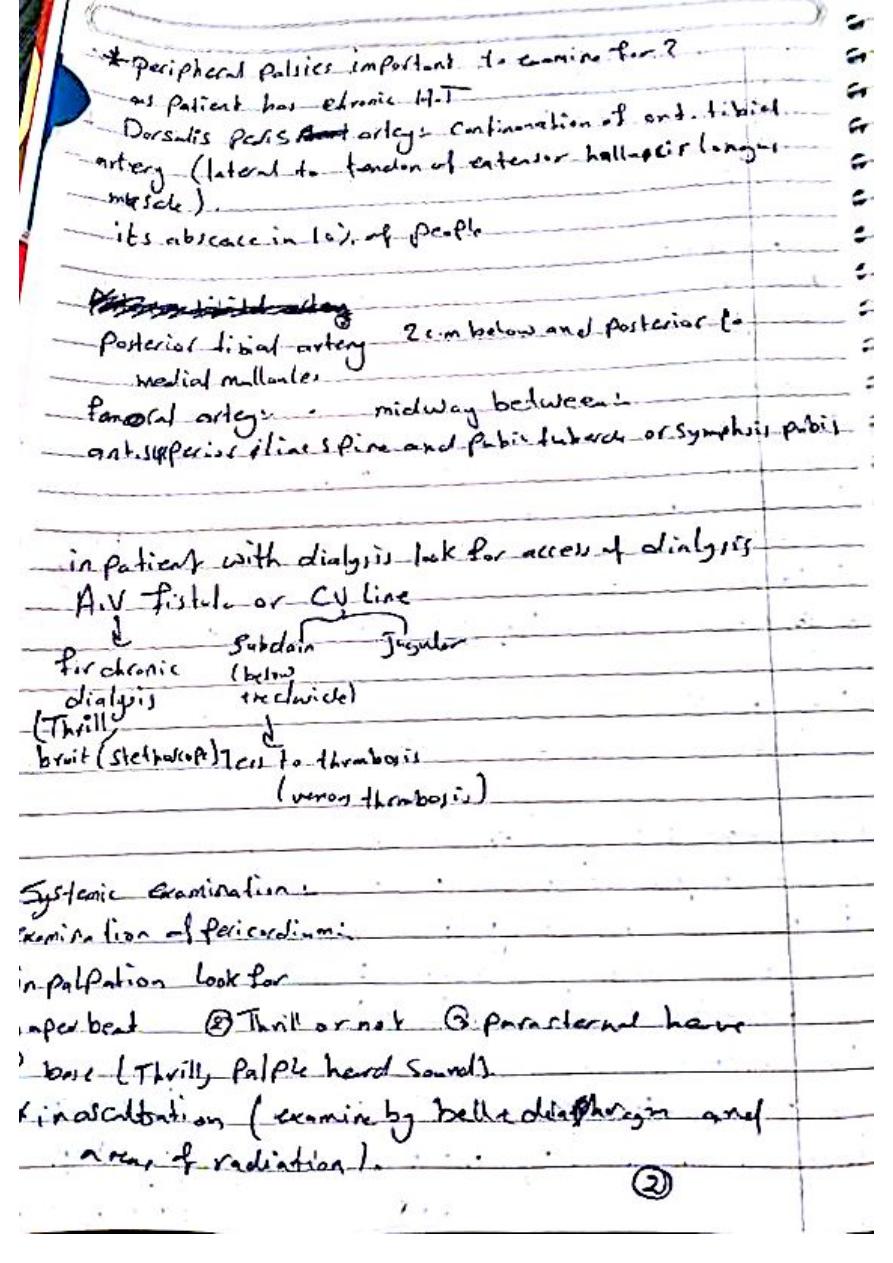 * peripheral palsies important to examine for?
as patient has chronic H.T
Dorsalis pedis artey: continonation of ant. tibial
artery (lateral to tendon of extensor hallucis longus
muscle).
its abscace in 10% of people
Posterior tibial artery 2 c.m below and posterior to
medial malloules
femoral artey: midway between:
ant. superior iliac spine and pubic tubercle or symphsis pubis
in patient with dialysis look for access of dialysis
A.V fistula or CV line
for chronic subclain Jugular
dialysis (below the clavicle)
(Thrill
bruit (stethoscope) less to thrombosis
(venous thrombosis)
Systemic examination:
examination of pericardium:
in palpation look for
apex beat ② Thrill or not ③ parasternal heave
base (Thrill, palple heard sound).
* in ascultation (examine by bell + diaphragm and
areas of radiation).
②